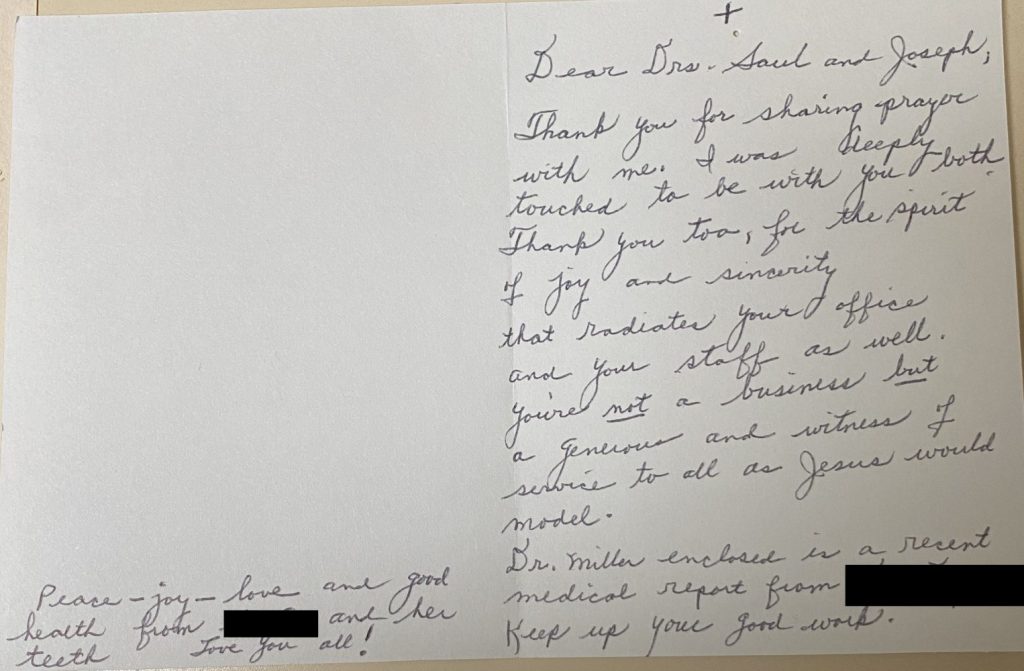 +
Dear Drs. Saul and Joseph,
Thank you for sharing prayer
with me. I was deeply
touched to be with you both.
Thank you too, for the spirit
of joy and sincerity
that radiates your office
and your staff as well.
You're not a business but
a generous and witness of
service to all as Jesus would
model.
Dr. Miller enclosed is a recent
medical report from
Keep up your good work.
Peace - joy - love and good
health from and her
teeth Love you all!